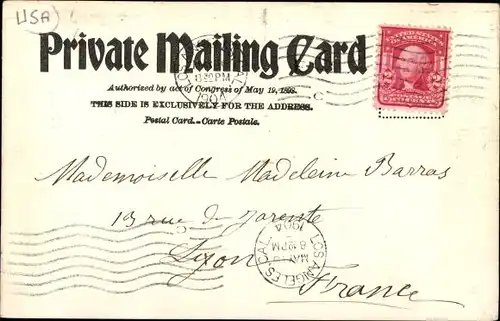 USA)
Private Mailing Card
Authorized by act of Congress of May 19, 1898.
THIS SIDE IS EXCLUSIVELY FOR THE ADDRESS.
Postal Card.=Carte Postale.
UNITED STATES
OF AMERICA
2 2
TWO CENTS
8 30 PM
1904
Mademoiselle Madeleine Barras
13 rue de Tarente
Lyon
France
LOS ANGELES, CAL.
MAY
8 12 PM
1904